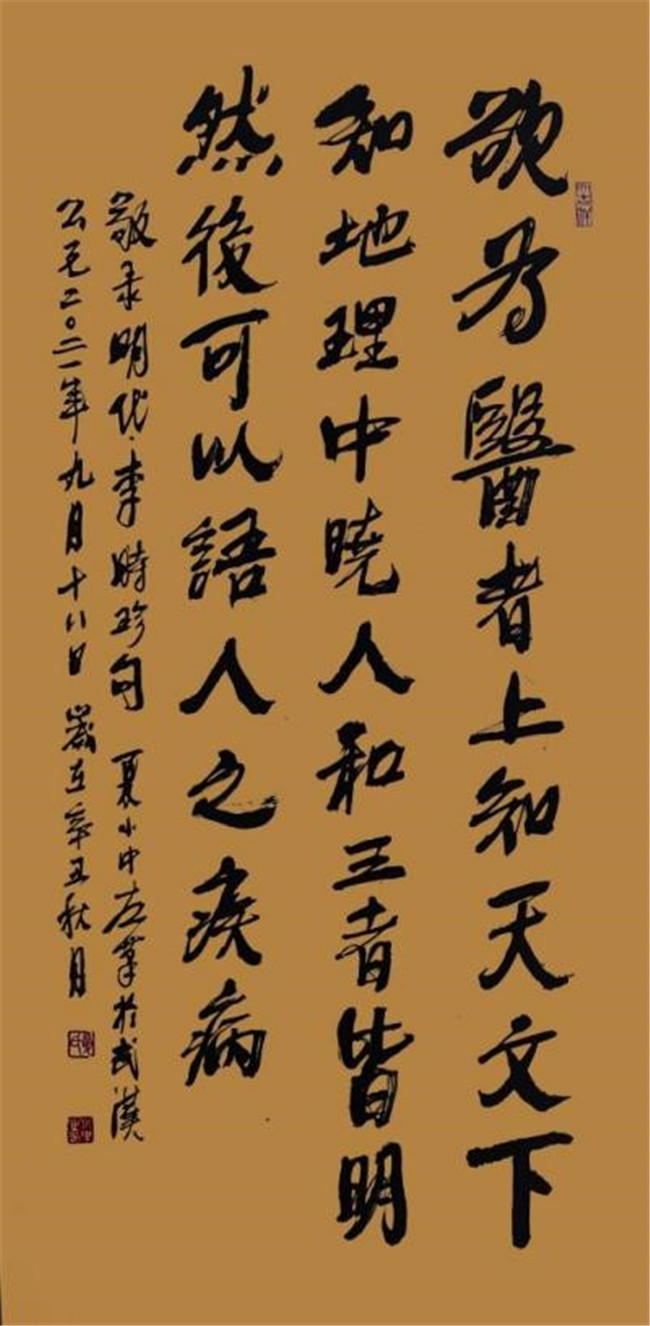 欲为醫者上知天文下
知地理中晓人和三者皆明
然後可以語人之疾病
敬录明代·李時珍句 夏小中左筆於武漢
公元二〇二一年九月十八日 歲在辛丑秋月